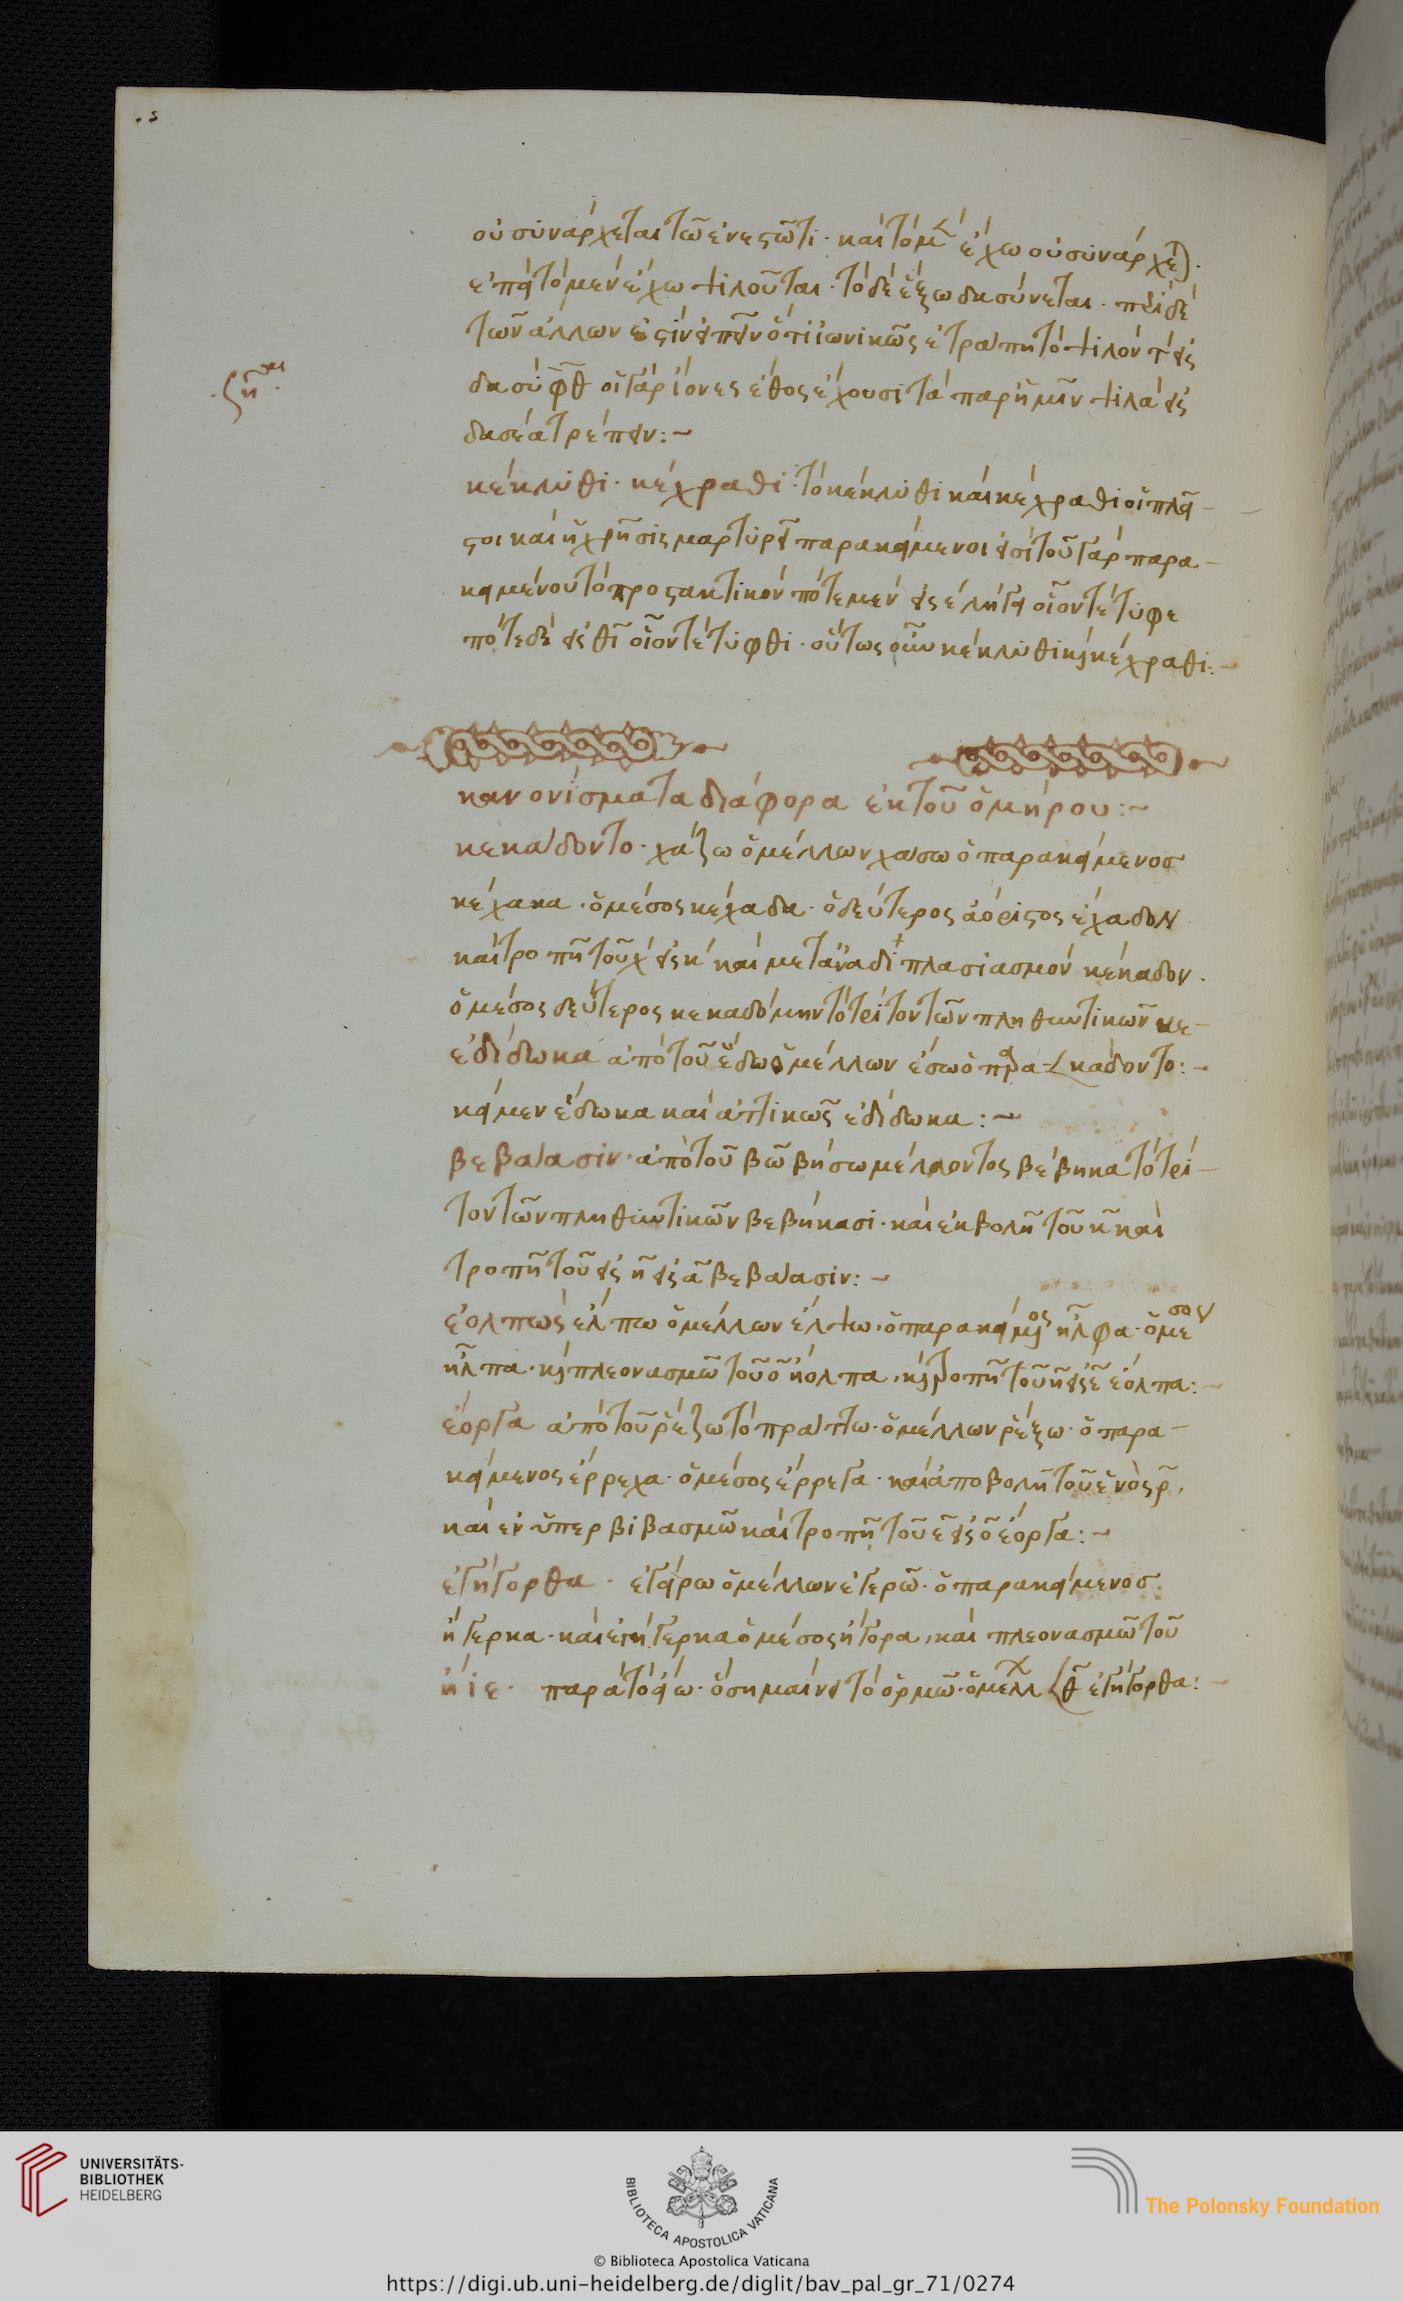 οὐ συνάρχεται τῶ ἐνεστῶτι· καὶ τὸ μὲν ἔχω οὐ συνάρχεται·
ἐπεὶ τὸ μὲν ἔχω ψιλοῦται· τὸ δὲ ἕξω δασύνεται· περὶ δὲ
τῶν ἄλλων ἐστὶν εἰπεῖν ὅτι ἰωνικῶς ἐτράπη τὸ ψιλὸν εἰς
δασὺ οἱ γὰρ ἴονες ἔθος ἔχουσι τὰ παρ ἡμῖν ψιλὰ εἰς
δασέα τρέπειν:~
κέκλυθι· κέχραθι· τὸ κέκλυθι καὶ κέχραθι οἱ πλεῖ-
στοι καὶ ἡ χρῆσις μαρτυρεῖ παρακείμενοι εἰσὶ τοῦ γὰρ παρα-
κειμένου τὸ προστακτικὸν πότε μὲν εἰς ε λήγει οἷον τέτυφε
πότε δὲ εἰς θι οἷον τέτυφθι· οὕτως οὖν κέκλυθι καὶ κέχραθι:~
κανονίσματα διάφορα ἐκ τοῦ ὁμήρου:~
κεκάδοντο· χάζω ὁ μέλλων χάσω ὁ παρακείμενος
κέχακα· ὁ μέσος κέχαδα· ὁ δεύτερος ἀόριστος ἔχαδον
καὶ τροπῆ τοῦ χ εἰς κ καὶ μετὰ ἀναδιπλασιασμὸν κέκαδον·
ὁ μέσος δεύτερος κεκαδόμην τὸ τρίτον τῶν πληθυντικῶν κε-
ἐδίδωκα ἀπὸ τοῦ ἔδω ὁ μέλλων ἔσω ὁ παρα- κάδοντο:~
κείμεν ἔδωκα καὶ ἀττικῶς ἐδίδωκα:~
βεβάασιν· ἀπὸ τοῦ βῶ βήσω μέλλοντος βέβηκα τὸ τρί-
τον τῶν πληθυντικῶν βεβήκασι· καὶ ἐκβολῆ τοῦ κ καὶ
τροπῆ τοῦ εἰς η εἰς α βεβάασιν:~
ἐολπὼς ἔλπω ὁ μέλλων ἔλψω· ὁ παρακείμενος ἦλφα· ὁ μέσος
ἦλπα· καὶ πλεονασμῶ τοῦ ο ἤολπα· καὶ τροπῆ τοῦ η εἰς ε ἔολπα:~
ἔοργα ἀπὸ τοῦ ῥέζω τὸ πράττω· ὁ μέλλων ῥέξω· ὁ παρα-
κείμενος ἔρρεχα· ὁ μέσος ἔρρεγα· καὶ ἀποβολῆ τοῦ ἑνὸς ρ,
καὶ ἐν ὑπερβιβασμῶ καὶ τροπῆ τοῦ ε εἰς ο ἔοργα:~
ἐγήγορθα· ἐγείρω ὁ μέλλων ἐγερῶ· ὁ παρακείμενος
ἤγερκα· καὶ ἐγήγερκα ὁ μέσος ἤγορα· καὶ πλεονασμῶ τοῦ
ἤϊε· παρὰ τὸ εἴω· ὃ σημαίνει τὸ ὁρμῶ· ὁ μέλλ θ ἐγήγορθα:~
UNIVERSITÄTS-
BIBLIOTHEK
HEIDELBERG
BIBLIOTECA APOSTOLICA VATICANA
The Polonsky Foundation
© Biblioteca Apostolica Vaticana
https://digi.ub.uni-heidelberg.de/diglit/bav_pal_gr_71/0274